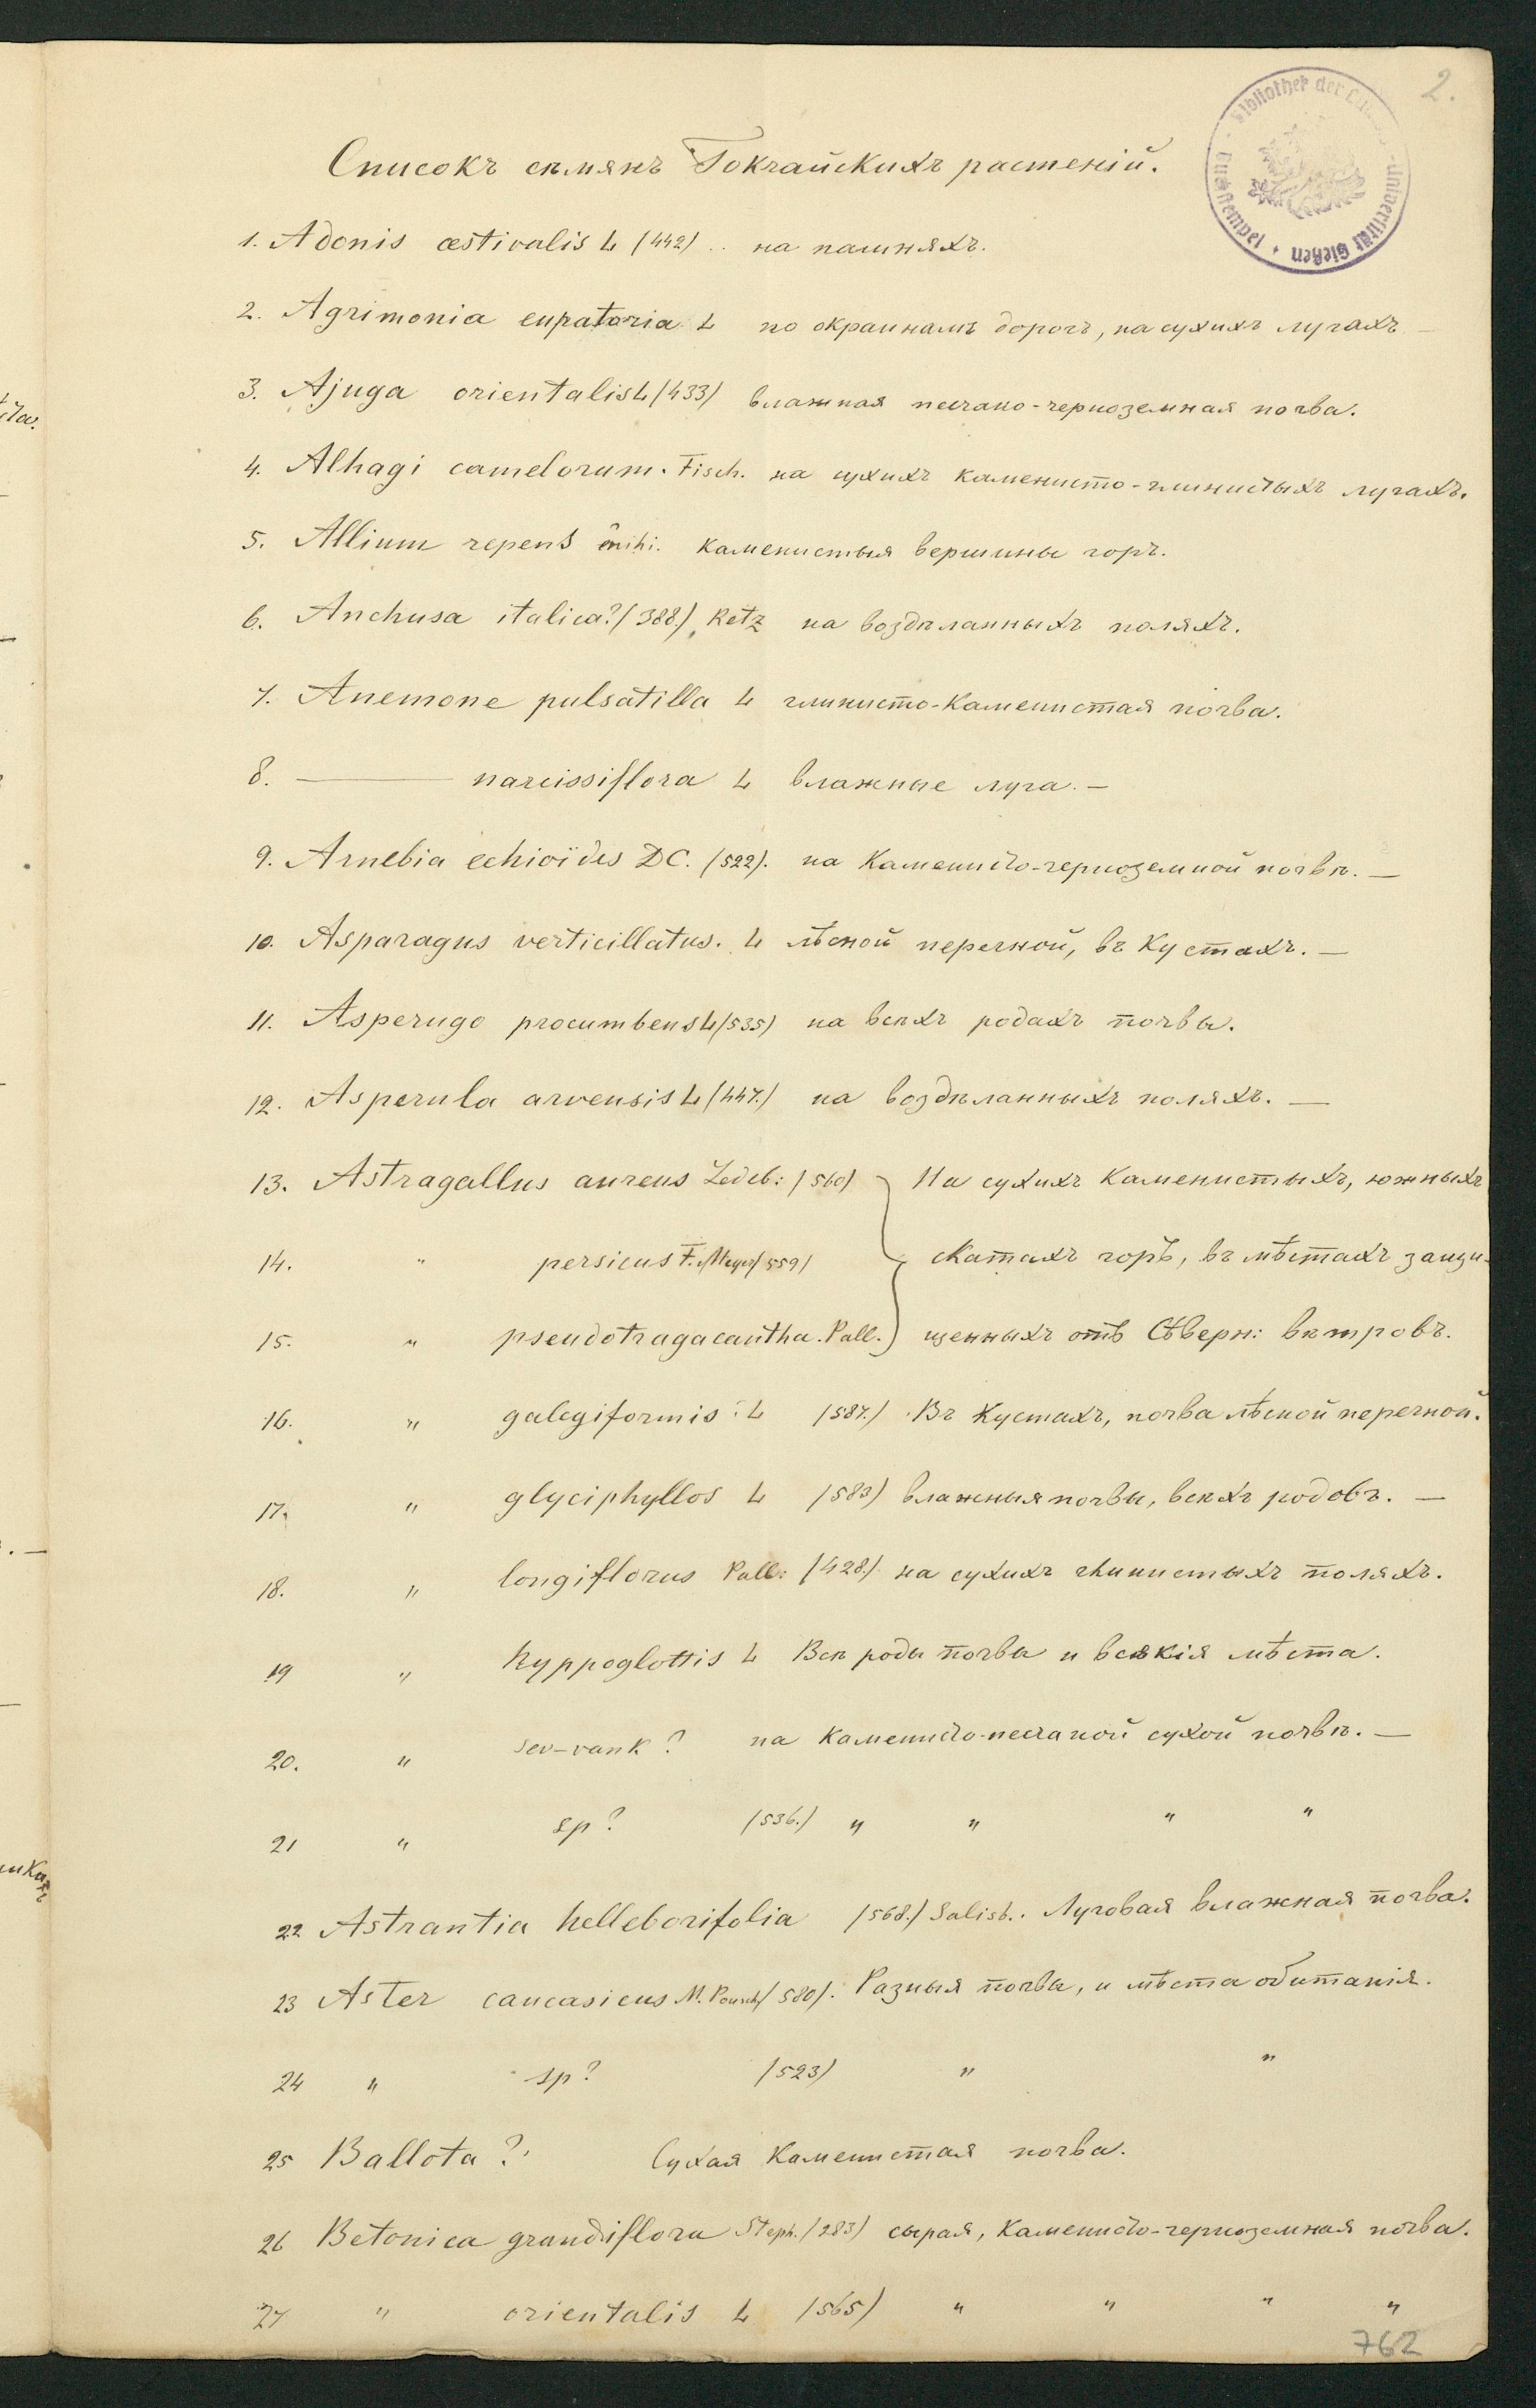 2.
Bibliothek der Ludwigs-Univerſität Gießen
Списокъ сѣмянъ Гокчайскихъ растеній.
1. Adonis æstivalis L (442) .. на пашняхъ.
2. Agrimonia eupatoria L по окраинамъ дорогъ, на сухихъ лугахъ —
3. Ajuga orientalis L (433) влажная песчано-черноземная почва.
4. Alhagi camelorum. Fisch. на сухихъ каменисто-глинистыхъ лугахъ.
5. Allium repens mihi. каменистыя вершины горъ.
6. Anchusa italica? (388.) Retz на воздѣланныхъ поляхъ.
7. Anemone pulsatilla L глинисто-каменистая почва.
8. ——— narcissiflora L влажные луга. —
9. Arnebia echioïdes DC. (522). на каменисто-черноземной почвѣ. —
10. Asparagus verticillatus. L лѣсной перегной, въ кустахъ. —
11. Asperugo procumbens L (535) на всѣхъ родахъ почвы.
12. Asperula arvensis L (447.) на воздѣланныхъ поляхъ. —
13. Astragallus aureus Ledeb: (560) На сухихъ каменистыхъ, южныхъ
14. " persicus F. Meyer (559) скатахъ горъ, въ мѣстахъ защи-
15. " pseudotragacantha. Pall. щенныхъ отъ Сѣверн: вѣтровъ.
16. " galegiformis: L (587.) Въ кустахъ, почва лѣсной перегной.
17. " glyciphyllos L (583) влажныя почвы, всѣхъ родовъ. —
18. " longiflorus Pall: (428.) на сухихъ глинистыхъ поляхъ.
19 " hyppoglottis L Всѣ роды почвы и всякія мѣста.
20. " sev-vank? на каменисто-песчаной сухой почвѣ. —
21 " sp? (536.) " " " "
22 Astrantia helleborifolia (568.) Salisb.. Луговая влажная почва.
23 Aster caucasicus (580). Разныя почвы, и мѣста обитанія.
24 " sp? (523) " "
25 Ballota? Сухая каменистая почва.
26 Betonica grandiflora Steph. (283) сырая, каменисто-черноземная почва.
27 " orientalis L (565) " " " "
762